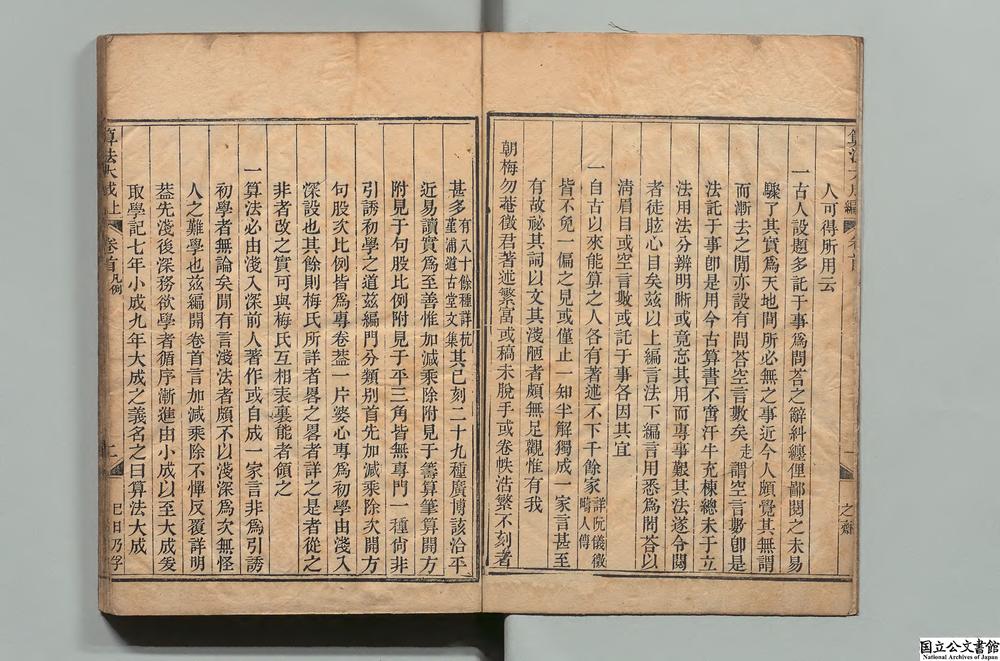 人可得所用云
一古人設題多託于事爲問荅之辭糾纏俚鄙閱之未易
驟了其實爲天地間所必無之事近今人頗覺其無謂
而漸去之閒亦設有問荅空言數矣走謂空言數卽是
法託于事卽是用今古算書不啻汗牛充棟總未于立
法用法分辨明晰或竟忘其用而專事艱其法遂令閱
者徒眩心目矣兹以上編言法下編言用悉爲問荅以
淸眉目或空言數或託于事各因其宜
一自古以來能算之人各有著述不下千餘家詳阮儀徵疇人傳
皆不免一偏之見或僅止一知半解獨成一家言甚至
有故祕其詞以文其淺陋者頗無足觀惟有我
朝梅勿菴徵君著述繁富或稿未脫手或卷帙浩繁不刻者
甚多有八十餘種詳杭堇浦道古堂文集其已刻二十九種廣博該洽平
近易讀實爲至善惟加減乘除附見于籌算筆算開方
附見于句股比例附見于平三角皆無專門一種尙非
引誘初學之道兹編門分類別首先加減乘除次開方
句股次比例皆爲專卷葢一片婆心專爲初學由淺入
深設也其餘則梅氏所詳者畧之畧者詳之是者從之
非者改之實可與梅氏互相表裏能者領之
一算法必由淺入深前人著作或自成一家言非爲引誘
初學者無論矣閒有言淺法者頗不以淺深爲次無怪
人之難學也兹編開卷首言加減乘除不憚反覆詳明
葢先淺後深務欲學者循序漸進由小成以至大成爰
取學記七年小成九年大成之義名之曰算法大成
算法大成上
卷首凡例
二
巳日乃孚
之齋
国立公文書館
National Archives of Japan